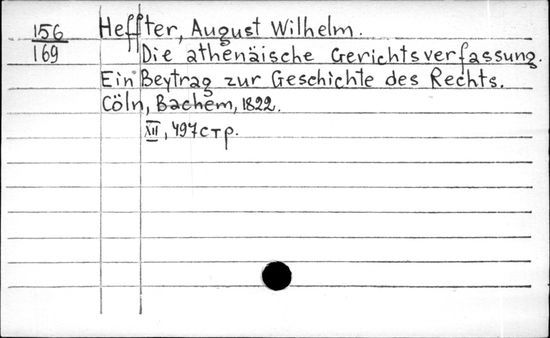 156 Heffter, August Wilhelm.
169 Die athenäische Gerichtsverfassung.
Ein Beytrag zur Geschichte des Rechts.
Cöln, Bachem, 1822.
XII, 497 стр.